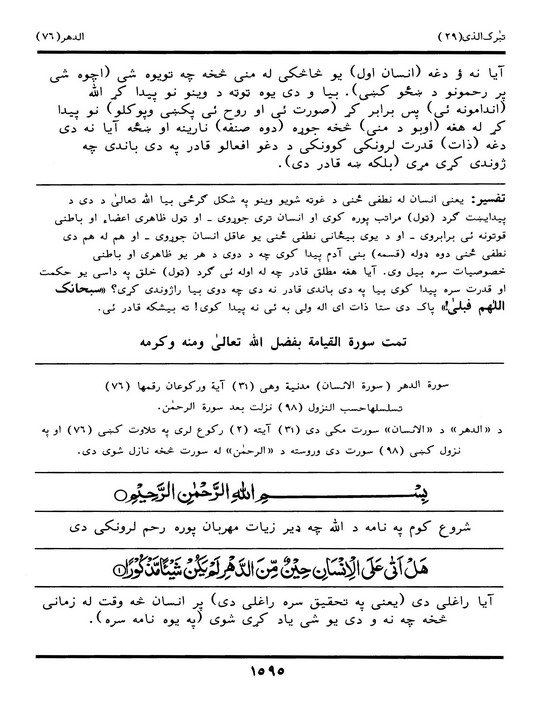 تبٰرک الذی(۲۹)
الدهر(۷۶)
آیا نه ؤ دغه (انسان اول) یو څاڅکی له منی څخه چه تویوه شی (اچوه شی
پر رحمونو د ښځو کښی). بیا و دی یوه ټوټه د وینو نو پیدا کړ الله
(اندامونه ئی) پس برابر کړ (صورت ئی او روح ئی پکښی وپوکلو) نو پیدا
کړ له هغه (اوبو د منی) څخه جوړه (دوه صنفه) نارینه او ښځه آیا نه دی
دغه (ذات) قدرت لرونکی کوونکی د دغو افعالو قادر په دی باندی چه
ژوندی کړی مړی (بلکه ښه قادر دی).
تفسیر: یعنی انسان له نطفی ځنی د غوټه شویو وینو په شکل ګرځی بیا الله تعالیٰ د دی د
پیدایښت ګرد (ټول) مراتب پوره کوی او انسان تری جوړوی ـ او ټول ظاهری اعضاء او باطنی
قوتونه ئی برابروی ـ او د یوی بیځانی نطفی ځنی یو عاقل انسان جوړوی ـ او هم له هم دی
نطفی ځنی دوه ډوله (قسمه) بنی آدم پیدا کوی چه د دوی د هر یو ظاهری او باطنی
خصوصیات سره بیل وی. آیا هغه مطلق قادر چه له اوله ئی ګرد (ټول) خلق په داسی یو حکمت
او قدرت سره پیدا کړی بیا په دی باندی قادر نه دی چه دوی بیا راژوندی کړی؟ «سبحانک
اللٰهم فبلیٰ!» پاک دی ستا ذات ای اله ولی به ئی نه پیدا کوی! ته بیشکه قادر ئی.
تمت سورة القیامة بفضل الله تعالیٰ ومنه وکرمه
سورة الدهر (سورة الانسان) مدنیة وهی (۳۱) آیة ورکوعان رقمها (۷۶)
تسلسلهاحسب النزول (۹۸) نزلت بعد سورة الرحمٰن.
د «الدهر» د «الانسان» سورت مکی دی (۳۱) آیته (۲) رکوع لری په تلاوت کښی (۷۶) او په
نزول کښی (۹۸) سورت دی وروسته د «الرحمٰن» له سورت څخه نازل شوی دی.
بِسْمِ اللهِ الرَّحْمٰنِ الرَّحِیْمِ○
شروع کوم په نامه د الله چه ډیر زیات مهربان پوره رحم لرونکی دی
هَلْ اَتٰی عَلَی الْاِنْسَانِ حِیْنٌ مِّنَ الدَّهْرِ لَمْ یَکُنْ شَیْئًا مَّذْکُوْرًا ۱
آیا راغلی دی (یعنی په تحقیق سره راغلی دی) پر انسان څه وقت له زمانی
څخه چه نه و دی یو شی یاد کړی شوی (په یوه نامه سره).
۱۵۹۵